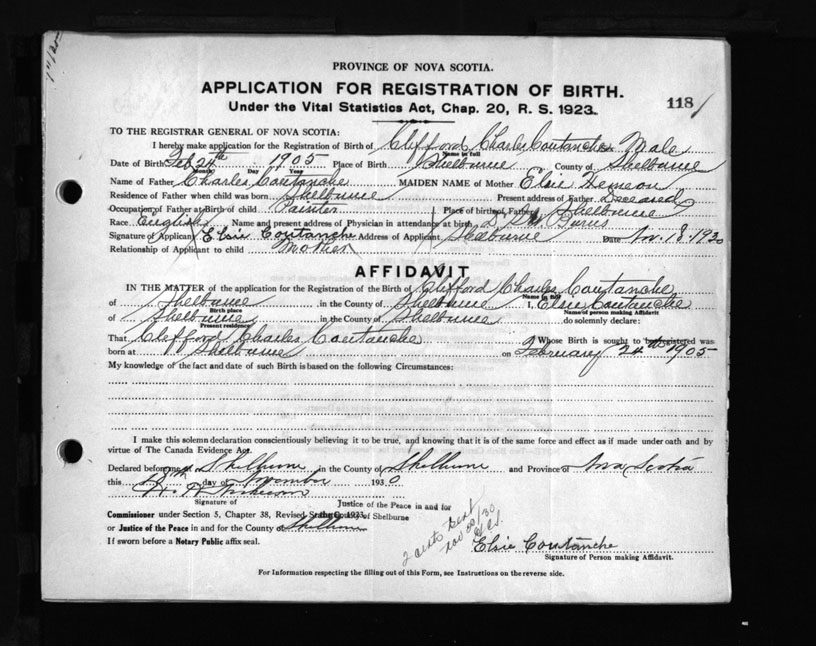 PROVINCE OF NOVA SCOTIA.
APPLICATION FOR REGISTRATION OF BIRTH.
Under the Vital Statistics Act, Chap. 20, R. S. 1923.
118
TO THE REGISTRAR GENERAL OF NOVA SCOTIA:
I hereby make application for the Registration of Birth of Clifford Charles Coutanche Male
Name in full
Date of Birth Feb 24th 1905 Place of Birth Shelburne County of Shelburne
Month Day Year
Name of Father Charles Coutanche MAIDEN NAME of Mother Elsie
Residence of Father when child was born Shelburne Present address of Father Deceased
Occupation of Father at Birth of child Painter Place of birth of Father Shelburne
Race English Name and present address of Physician in attendance at birth
Signature of Applicant Elsie Coutanche Address of Applicant Shelburne Date Nov. 18. 1930
Relationship of Applicant to child Mother
AFFIDAVIT
IN THE MATTER of the application for the Registration of the Birth of Clifford Charles Coutanche
Name in full
of Shelburne in the County of Shelburne I, Elsie Coutanche
Birth place Name of person making Affidavit
of Shelburne in the County of Shelburne do solemnly declare:
Present residence
That Clifford Charles Coutanche Whose Birth is sought to be registered was
born at Shelburne on February 24th 1905
My knowledge of the fact and date of such Birth is based on the following Circumstances:
I make this solemn declaration conscientiously believing it to be true, and knowing that it is of the same force and effect as if made under oath and by
virtue of The Canada Evidence Act.
Declared before me at Shelburne in the County of Shelburne and Province of Nova Scotia
this 18th day of November 1930
Signature of
Justice of the Peace in and for
Commissioner under Section 5, Chapter 38, Revised Statutes, 1923
the County of Shelburne
or Justice of the Peace in and for the County of Shelburne
If sworn before a Notary Public affix seal.
Nov 20/30
Elsie Coutanche
Signature of Person making Affidavit.
For Information respecting the filling out of this Form, see Instructions on the reverse side.